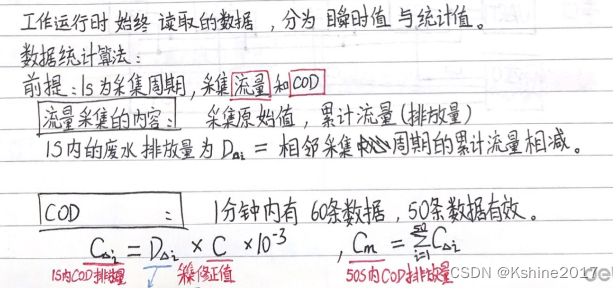 工作运行时 始终 读取的数据 ，分为 瞬时值 与统计值。
数据统计算法：
前提：1s为采集周期，采集流量和COD
流量采集的内容： 采集原始值，累计流量(排放量)
1S内的废水排放量为 D△i = 相邻采集周期的累计流量相减。
COD ： 1分钟内有 60条数据，50条数据有效。
C△i = D△i × C ×10⁻³ ，Cm = ∑(i=1→50) C△i
1S内COD排放量 修正值 50S内COD排放量
CSDN @Kshine2017